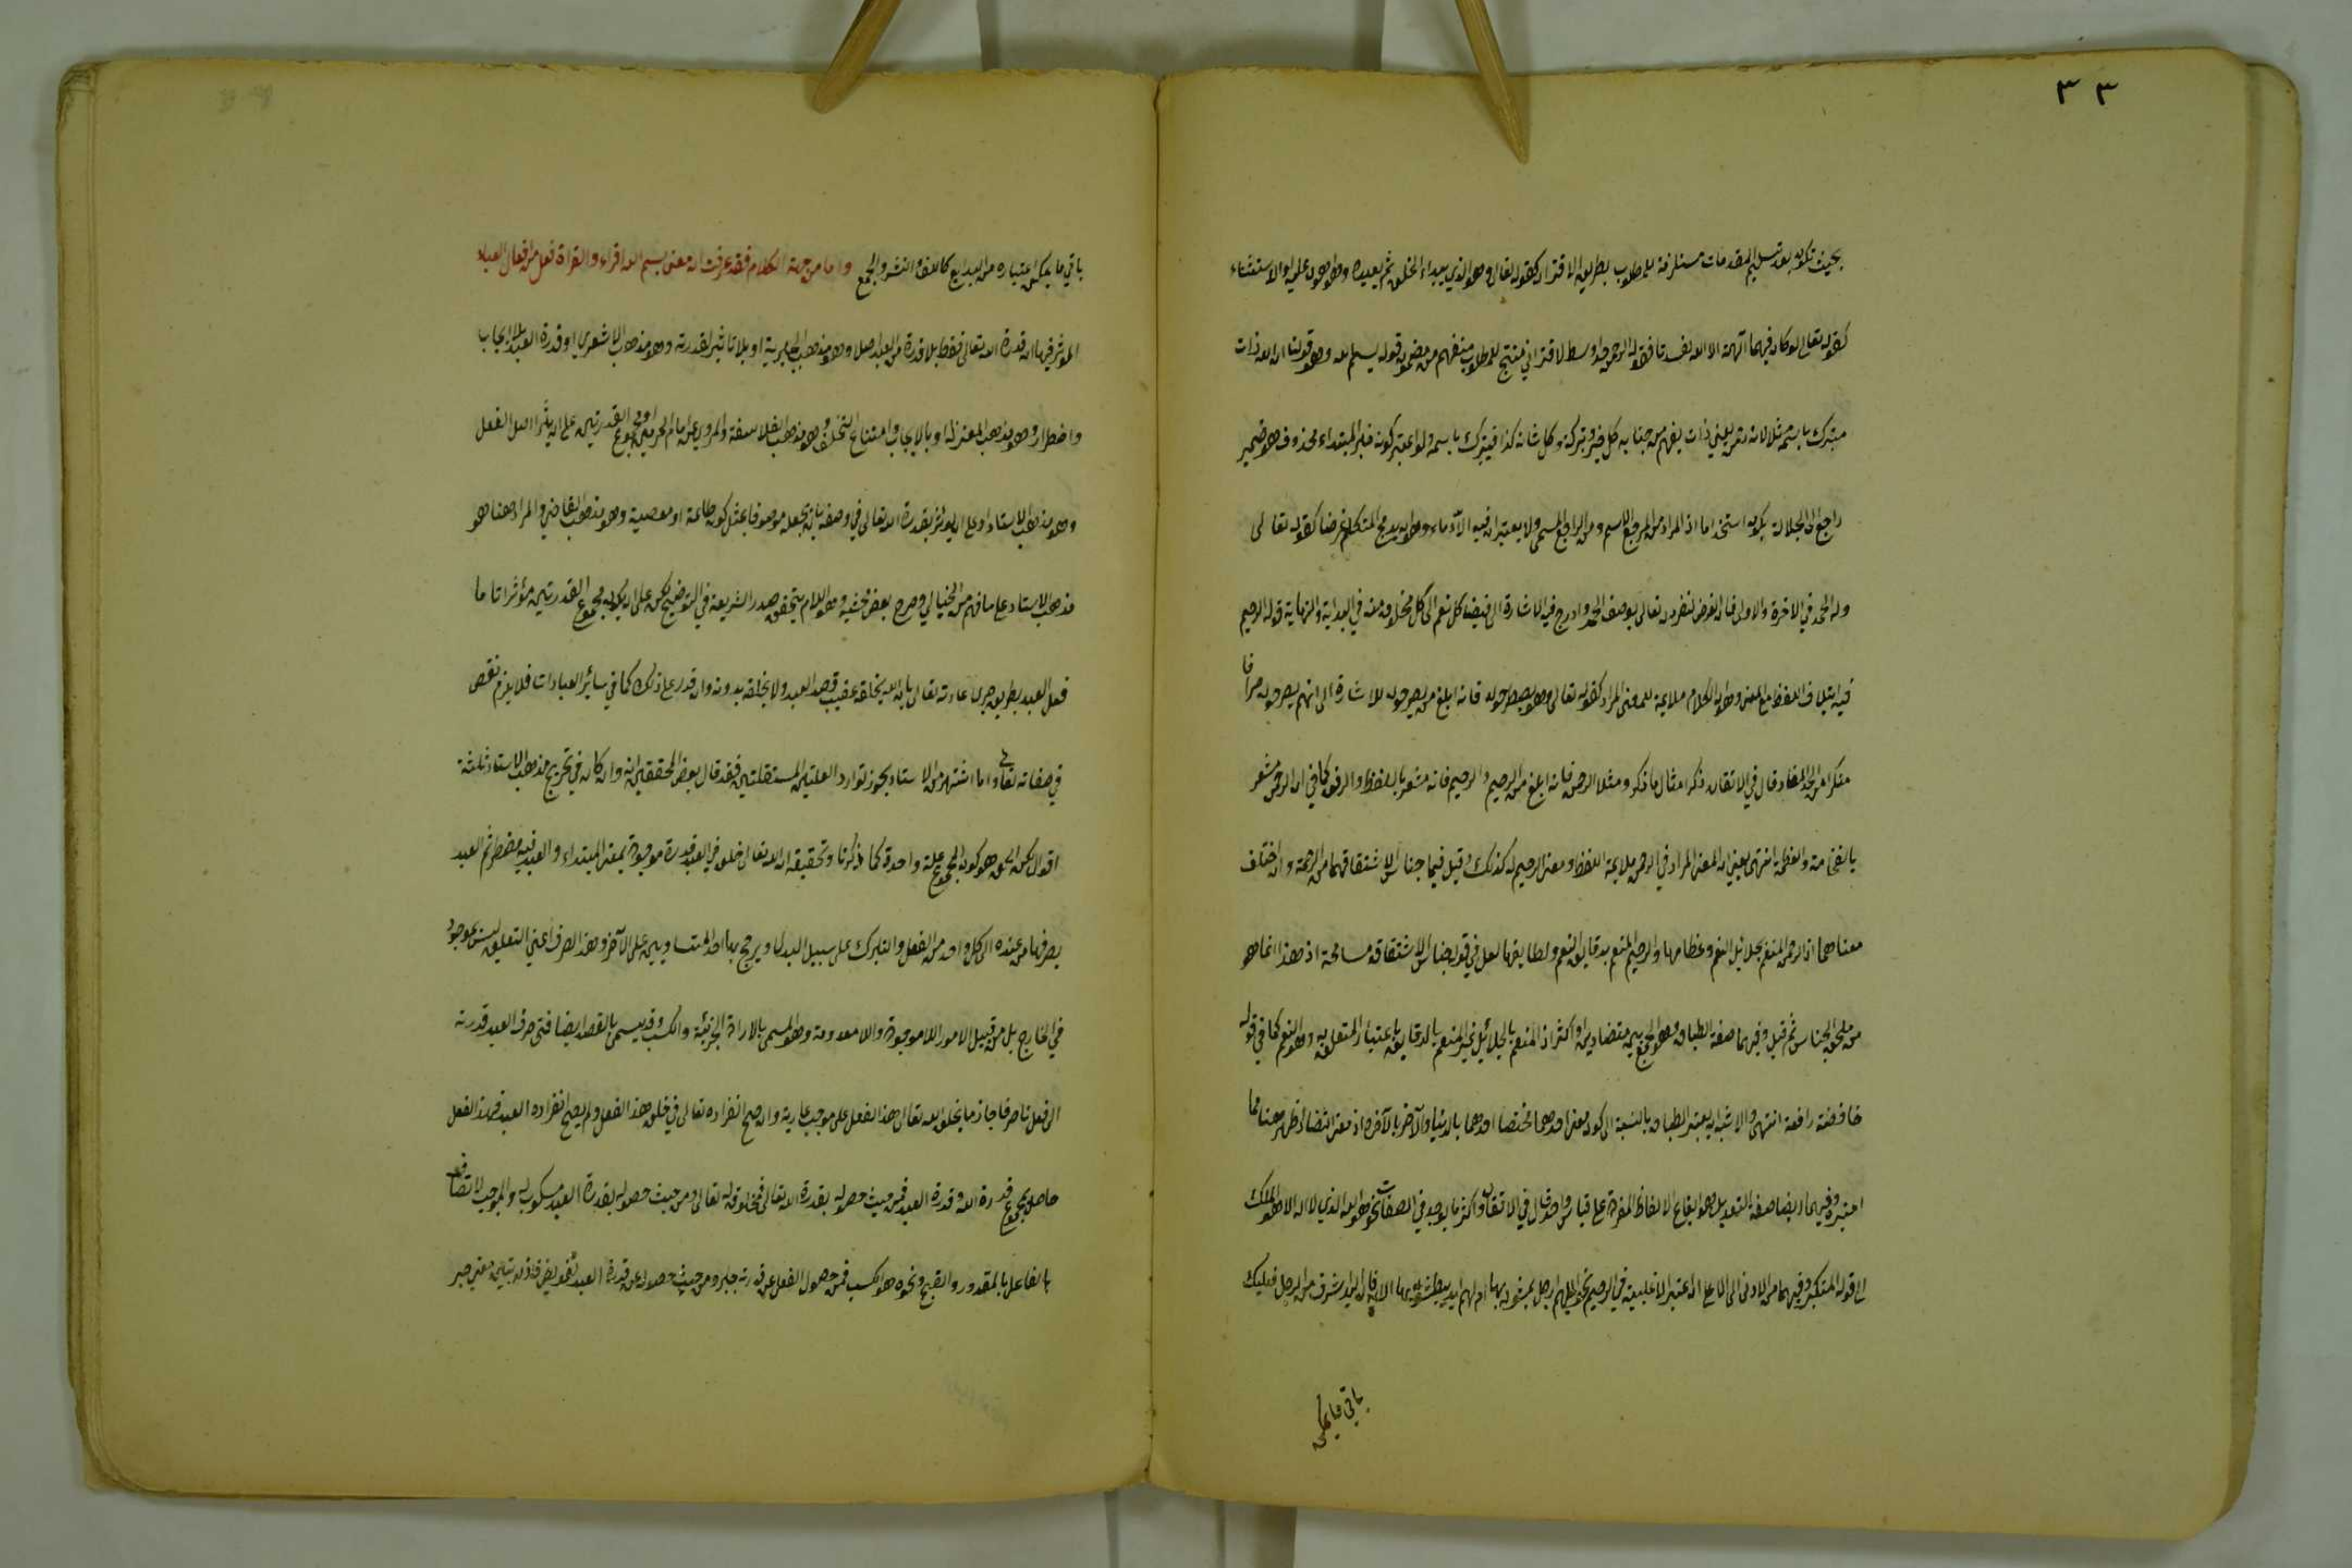 ٣٣
بحيث تكون بعد تسليم المقدمات مستلزمة للمطلوب بطريق الاقتران كقوله تعالى وهو الذي يبدء الخلق ثم يعيده وهو اهون عليه او الاستثناء
كقوله تعالى لو كان فيهما آلهة الا الله لفسدتا فقوله الرحمن حد اوسط لاقتراني منتج للمطلوب منفهم من مضمون قوله بسم الله وهو قولنا ان الله ذات
متبرك باسمه لانه رحمن يعني ذات يفهم من جنابه كل خير وبركة وكل شانه كذا فيتبرك باسمه ولو اعتبر كونه خبر المبتداء محذوف هو ضمير
راجع الى الجلالة يكون استخداما اذ المراد من المرجع الاسم ومن الراجع المسمى ولا يعتبر ان فيه الادماج وهو ان يدمج المتكلم غرضا كقوله تعالى
وله الحمد في الاخرة والاولى فان الغرض تفرده تعالى بوصف الحمد وادرج فيه الاشارة الى فيضان كل نعم الى كل مخلوق منه في البداية والنهاية قوله الرحيم
فيه ايتلاف اللفظ مع المعنى وهو ان الكلام ملايمة للمعنى المراد كقوله تعالى وهم يصطرخون فانه ابلغ من يصرخون للاشارة الى انهم يصرخون صراخا
منكرا من الحد المعتاد قال في الاتقان ذكر امثال ما ذكر ومثله الرحمن فانه ابلغ من الرحيم والرحيم فانه مشعر باللطف والرفق كما في ان الرحمن مشعر
بالفخامة والعظمة انتهى يعني ان المعنى المراد في الرحمن ملايمة اللفظ ومعنى الرحيم كذلك وقيل فيهما جناس الاشتقاق هما من الرحمة وان اختلف
معناهما اذ الرحمن المنعم بجلائل النعم وعظامها والرحيم المنعم بدقايق النعم ولطايفها لعل في قوله جناس الاشتقاق مسامحة اذ هذا انما هو
من ملحق الجناس ثم قيل وفيهما صفة الطباق وهو الجمع بين متضادين او اكثر اذ المنعم بالجلائل غير المنعم بالدقايق باعتبار المتعلق به وهو النعم كما في قوله
خافضة رافعة انتهى والاشبه ان يعتبر الطباق بالنسبة الى كون معنى احدهما مختصا احدهما بالدنيا والآخر بالآخرة اذ معنى التضاد اظهر هنا مما
اعتبره وفيهما ايضا صفة التعديد وهو ايقاع الالفاظ المفردة على قياس واحد قال في الاتقان واكثر ما يوجد في الصفات نحو هو الله الذي لا اله الا هو الملك
الى قوله المتكبر وفيهما من الادنى الى الاعلى ان اعتبر الاغلبية في الرحيم نحو الهم ارجل يمشون بها ام لهم ايد يبطشون بها الاية فان اليد اشرف من الرجل فعليك
باقي ما يمكن
باقي ما يمكن اعتباره من البدايع كاللف والنشر والجمع واما من جهة الكلام فقد عرفت ان معنى بسم الله اقراء والقراة فعل من افعال العباد
المؤثر فيها ان قدرة الله تعالى فقط بلا قدرة من العبد اصلا وهو مذهب الجبرية او بلا تاثير لقدرته وهو مذهب الاشعري او قدرة العبد بلا ايجاب
واضطرار وهو مذهب المعتزلة او بالايجاب وامتناع التخلف وهو مذهب الفلاسفة والمروي عن امام الحرمين او مجموع القدرتين على ان يؤثرا اصل الفعل
وهو مذهب الاستاد او على ان يؤثر بقدرة الله تعالى في وصفه بان يجعله موصوفا بمثل كونه طاعة او معصية وهو مذهب القاضي والمراد هنا هو
مذهب الاستاد على ما فهم من الخيالي وصرح بعض محشيه وهو اللازم بتحقيق صدر الشريعة في التوضيح لكن على ان يكون مجموع القدرتين مؤثرا تاما
فعل العبد بطريق جرى عادته تعالى بان الله يخلقه عقيب قصد العبد ولا يخلقه بدونه وان قدر على ذلك كما في سائر العبادات فلا يلزم نقص
في صفاته تعالى واما اشتهر من الاستاد يجوز توارد العلتين المستقلتين فقد قال بعض المحققين انه وان كان في تخريج مذهب الاستاد ثلثة
اقوال لكن الحق هو كون المجموع علة واحدة كما ذكرنا وتحقيقه ان الله تعالى خلق في العبد قدرة موجودة بمعنى المبتداء والعبد فيه مضطر ثم العبد
يصرفها من عنده الى كل واحد من الفعل والتارك على سبيل البدل ويرجح بها احد المتساويين على الآخر وهذا الصرف اعني التعلق ليس بموجود
في الخارج بل من قبيل الامور اللاموجودة واللامعدومة وهو المسمى بالارادة الجزئية والكسب وقد يسمى بالقصد ايضا فمتى صرف العبد قدرته
الى فعل ناصرفا جازما يخلق الله تعالى هذا الفعل على موجب عادته وان صح انفراده تعالى في خلق هذا الفعل ولم يصح انفراده العبد فهذا الفعل
حاصل بمجموع قدرة الله وقدرة العبد فمن حيث حصوله بقدرة الله تعالى مخلوق له تعالى ومن حيث حصوله بقدرة العبد مكسوب له والموجب لاتصاف
الفاعل بالمقدور والقبيح ونحوه هو الكسب فمن حصول الفعل عن قدرته جبر ومن حيث حصوله عن قدرة العبد تفويض